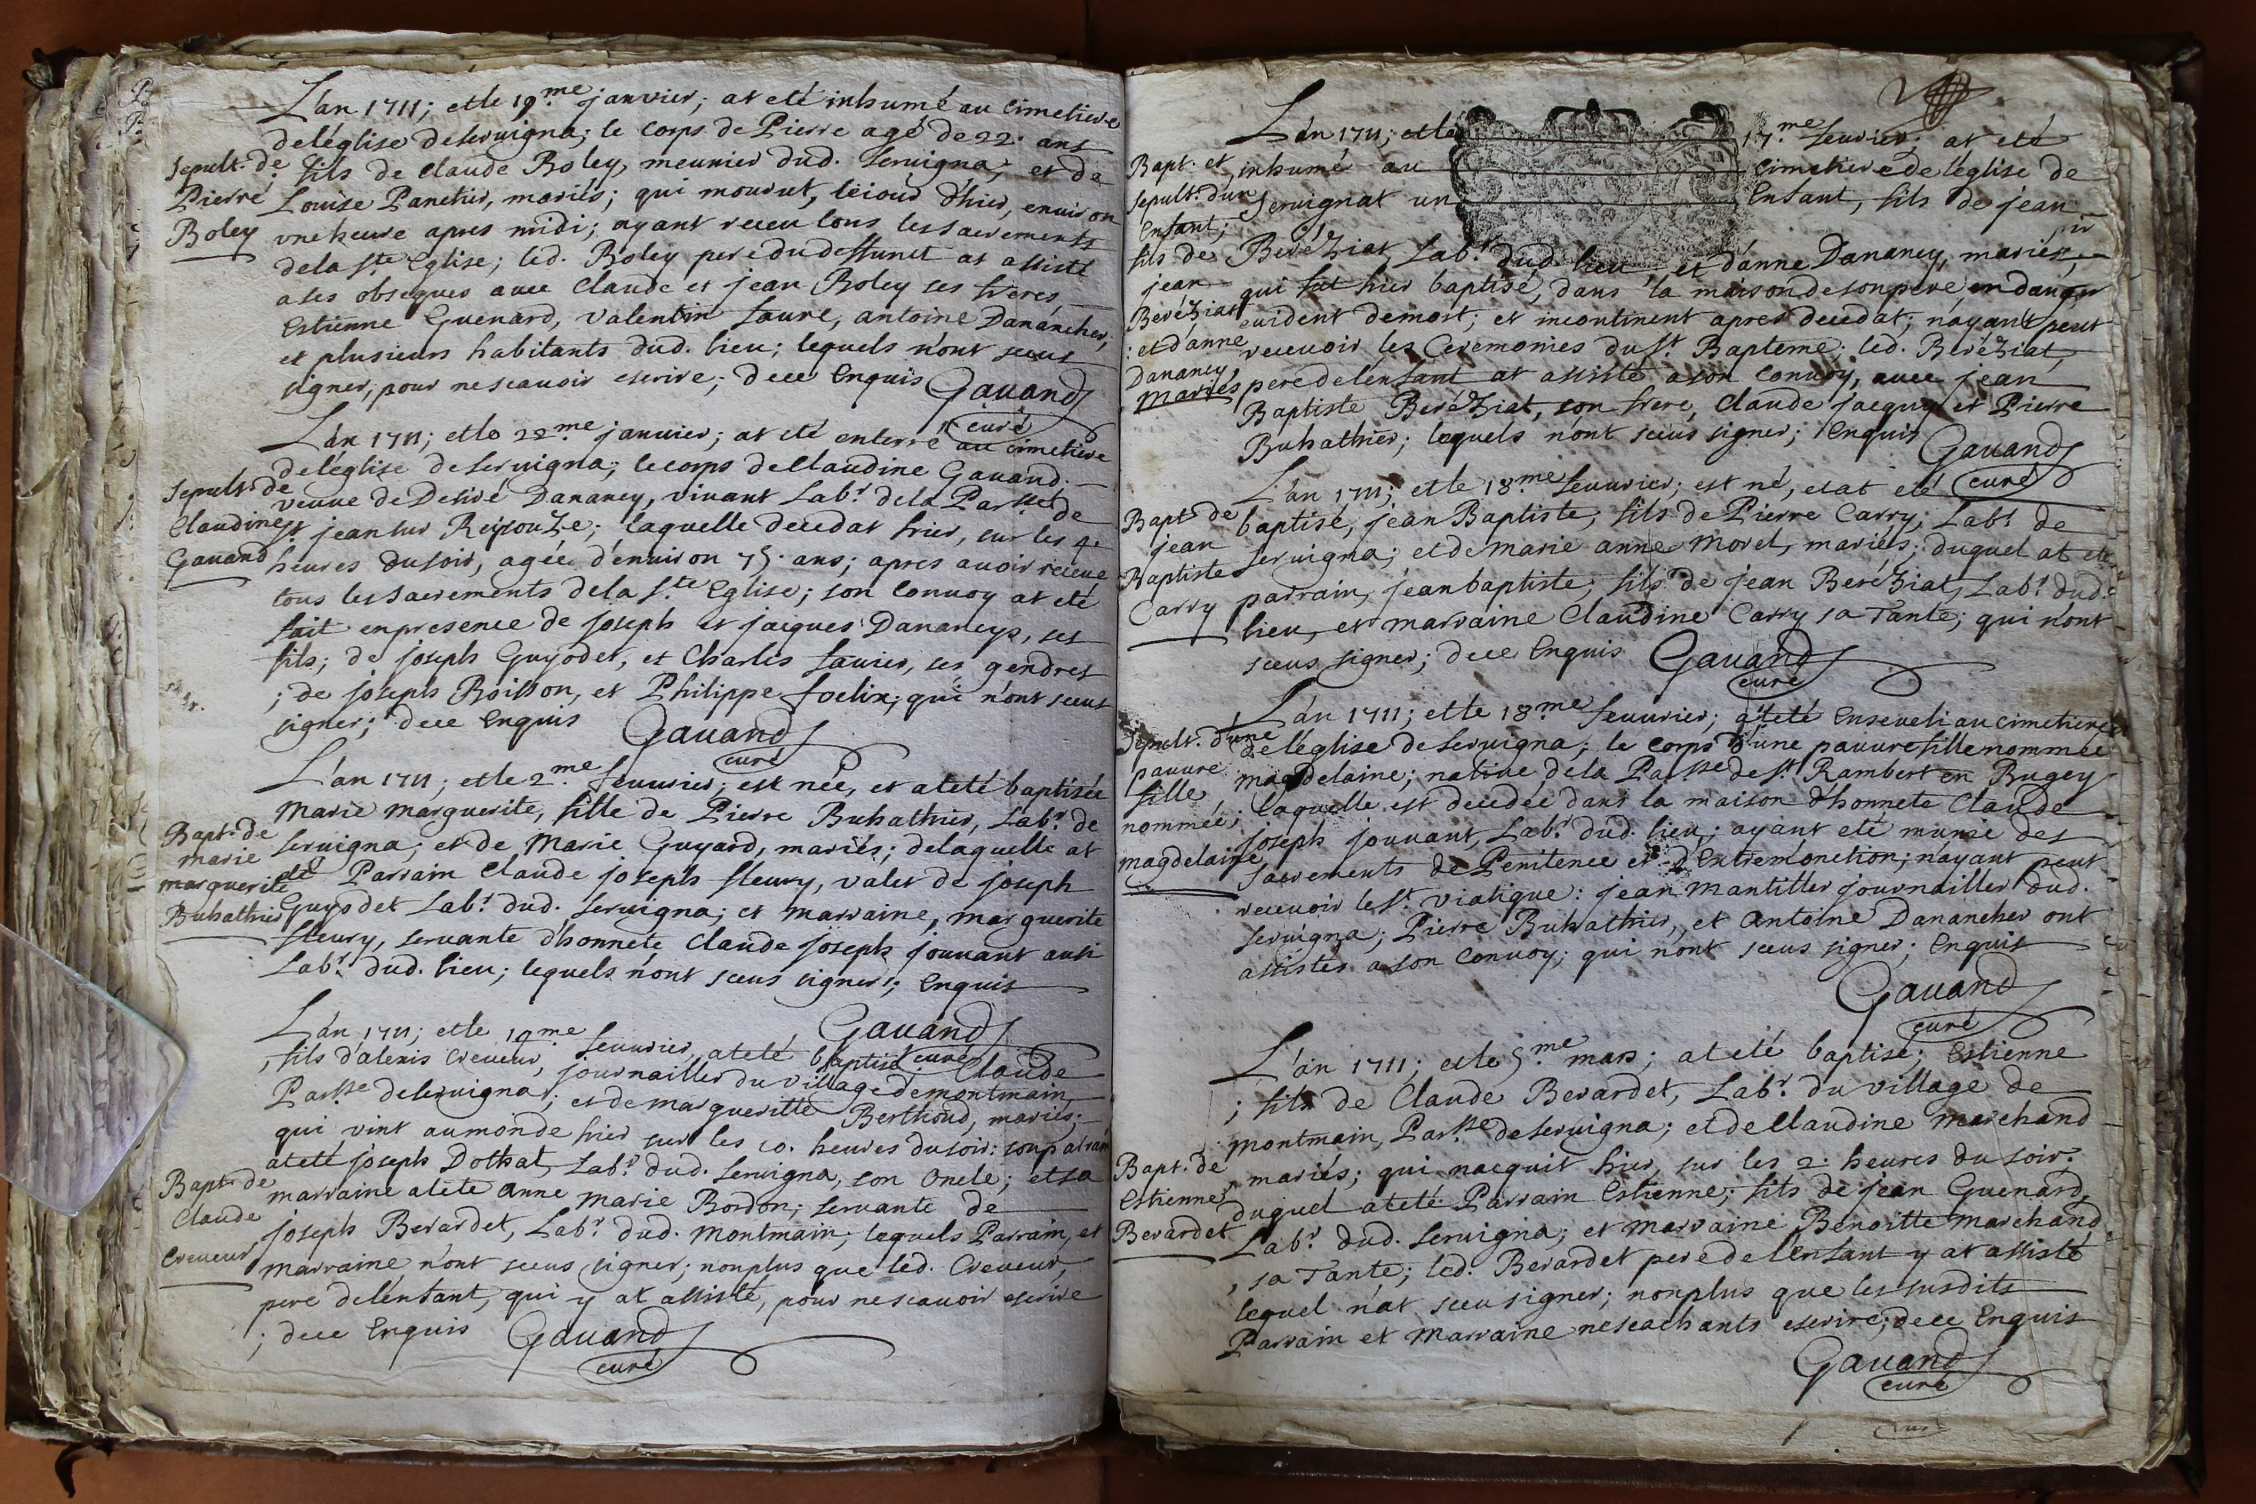 L'an 1711; et le 19.me janvier; at eté inhumé au cimetiere
de l'église de Servigna; le corps de Pierre agé de 22. ans
Sepult. de
Pierre
Boley
fils de Claude Boley, meunier dud. Servigna; et de
Louise Panetier, mariés; qui mourut, le iour d'hier, environ
vne heure apres midi; ayant receu tous les sacrements
de la S.te Eglise; led. Boley pere du deffunct at assisté
a ses obseques auec Claude et jean Boley ses freres
Estienne Guenard, Valentin faure, antoine Danancher,
et plusieurs habitants dud. lieu; lequels n'ont sceus
signer, pour ne scauoir escrire; de ce Enquis Gauand
curé
L'an 1711; et le 22.me januier; at eté enterré au cimetiere
de l'église de Seruigna; le corps de Claudine Gauand
Sepult. de
Claudine
Gauand
veuue de Desiré Dananey, viuant Lab.r de la Par.sse de
S.t jean sur Reisouze; laquelle decedat hier, sur les 4.
heures du soir, agée d'enuiron 75. ans; apres auoir receue
tous les sacrements de la S.te Eglise; son conuoy at eté
fait en presence de joseph et jacques Dananeys, ses
fils; de joseph Guyodet, et Charles fauier, ses gendres
; de joseph Boisson, et Philippe foelix; qui n'ont sceus
signer; de ce Enquis Gauand
curé
L'an 1711; et le 2.me feuurier; est née, et at eté baptisée
Bapt. de
marie
marguerite
Buhathier
Marie marguerite, fille de Pierre Buhathier, Lab.r de
Seruigna; et de Marie Guyard, mariés; de laquelle at
eté Parrain Claude joseph fleury, valet de joseph
Guyodet Lab.r dud. Seruigna; et marraine, marguerite
fleury, seruante d'honnete Claude joseph jouuant aussi
Lab.r dud. lieu; lequels n'ont sceus signer; Enquis
Gauand
curé
L'an 1711; et le 19.me feuurier, at eté baptisé Claude
, fils d'alexis Creueur, journaillier du village de montmain,
Par.sse de Seruigna; et de margueritte Berthoud, mariés;
qui vint au monde hier sur les 10. heures du soir: son parrain
at eté joseph Dothat, Lab.r dud. Seruigna, son oncle; et sa
Bapt. de
Claude
Creueur
marraine at eté anne marie Bordon; seruante de
joseph Berardet, Lab.r dud. montmain; lequels Parrain, et
marraine n'ont sceus signer; non plus que led. Creueur,
pere de l'enfant, qui y at assisté, pour ne scauoir escrire
; de ce Enquis Gauand
curé
L'an 1711; et le 17.me feurier; at eté
Bapt. et
Sepult. d'un
Enfant;
fils de
jean
Beréziat
: et d'anne
Dananey,
mariés
inhumé au cimetiere de l'église de
Seruignat un Enfant, fils de jean
Beréziat Lab.r dud. lieu, et d'anne Dananey, mariés;
qui fut hier baptisé, dans la maison de son pere, en danger
euident de mort; et incontinent apres decedat; n'ayant peut
receuoir les Ceremonies du S.t Bapteme; led. Beréziat,
pere de l'enfant at assisté a son conuoy, auec jean
Baptiste Beréziat, son frere, Claude jacquy et Pierre
Buhathier; lequels n'ont sceus signer; Enquis
Gauand
curé
L'an 1711; et le 18.me feuurier; est né, et at eté
Bapt. de
jean
Baptiste
Carry
baptisé, jean Baptiste, fils de Pierre Carry; Lab.r de
Seruigna; et de marie anne morel, mariés; duquel at eté
parrain, jean baptiste, fils de jean Beréziat, Lab.r dud.
lieu, et marraine Claudine Carry sa Tante; qui n'ont
sceus signer; de ce Enquis Gauand
curé
L'an 1711; et le 18.me feuurier; at eté Enseueli au cimetiere
Sepult. d'une
pauure
fille
nommée;
magdelaine
de l'église de Seruigna; le corps d'une pauure fille nommée
magdelaine; natiue de la Par.sse de S.t Rambert en Bugey
; laquelle est decedée dans la maison d'honnete Claude
joseph jouuant, Lab.r dud. lieu; ayant eté munie des
sacrements de Penitence et d'Extremonction; n'ayant peut
receuoir le S.t viatique: jean mantillier journaillier dud.
Seruigna; Pierre Buhathier, et antoine Danancher ont
assistés a son conuoy; qui n'ont sceus signer; Enquis
Gauand
curé
L'an 1711; et le 5.me mars; at eté baptisé; Estienne
; fils de Claude Berardet, Lab.r du village de
montmain, Par.sse de Seruigna; et de Claudine marchand
Bapt. de
Estienne
Berardet
, mariés; qui nacquit hier, sur les 2. heures du soir:
duquel at eté Parrain Estienne; fils de jean Guenard,
Lab.r dud. Seruigna; et marraine Benoitte marchand
, sa Tante; led. Berardet pere de l'enfant y at assisté
lequel n'at sceu signer; non plus que les susdits
Parrain et marraine ne scachants escrire; de ce Enquis
Gauand
curé